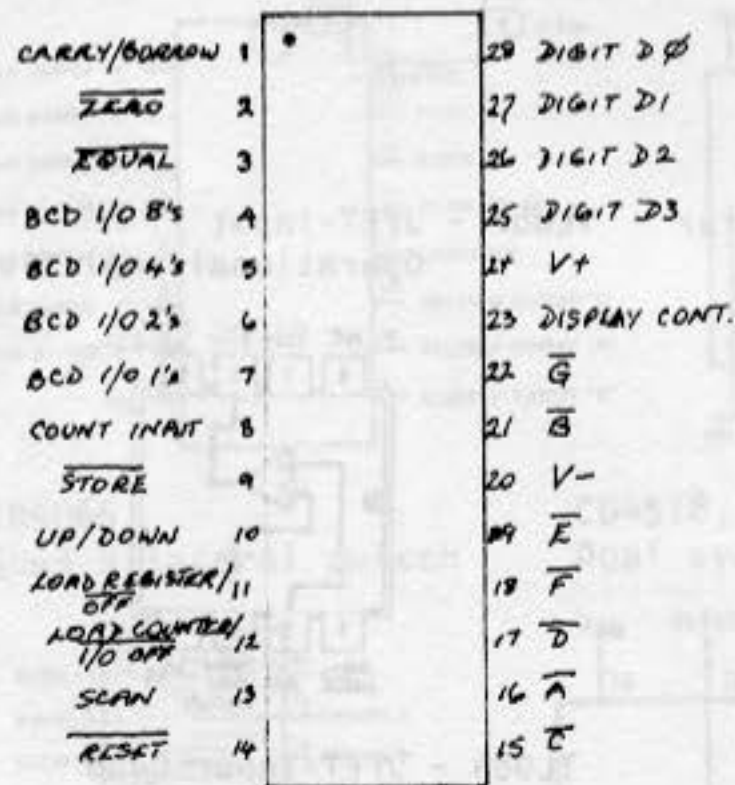 CARRY/BORROW 1
ZERO 2
EQUAL 3
BCD I/O 8's 4
BCD I/O 4's 5
BCD I/O 2's 6
BCD I/O 1's 7
COUNT INPUT 8
STORE 9
UP/DOWN 10
LOAD REGISTER/ 11
OFF
LOAD COUNTER/ 12
I/O OFF
SCAN 13
RESET 14
28 DIGIT D0
27 DIGIT D1
26 DIGIT D2
25 DIGIT D3
24 V+
23 DISPLAY CONT.
22 G
21 B
20 V-
19 E
18 F
17 D
16 A
15 C